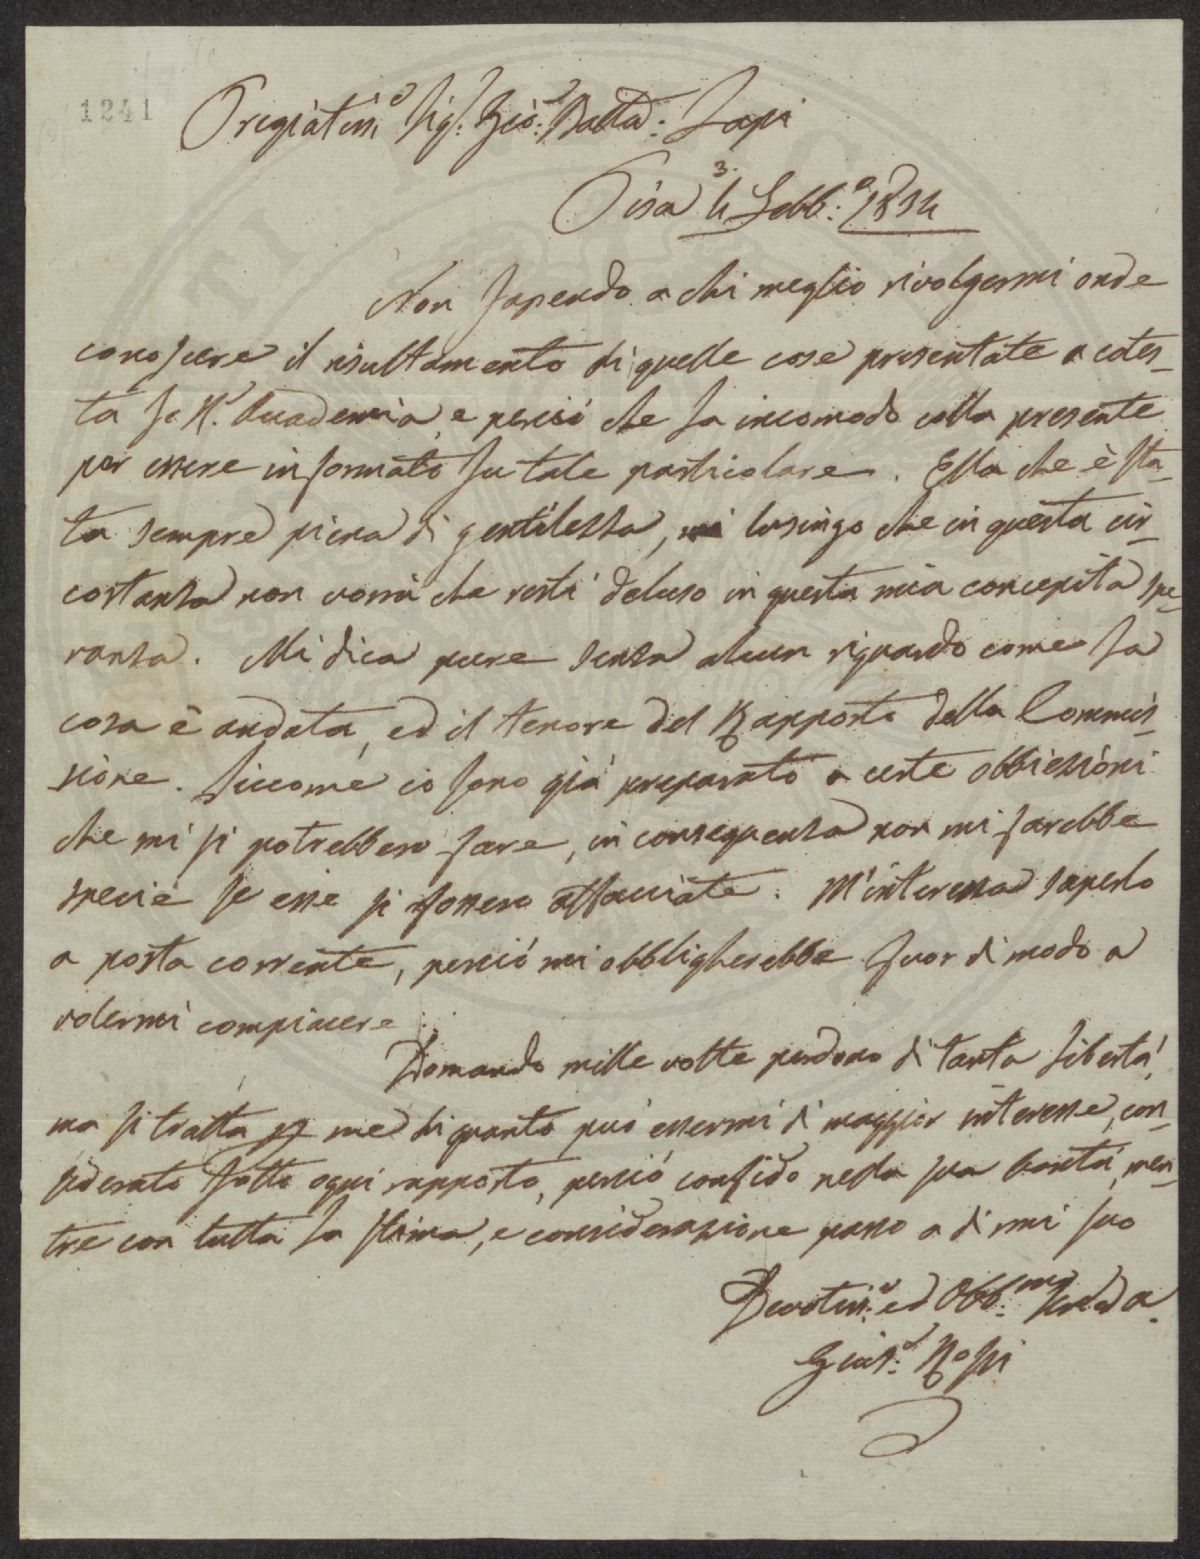 1241
Pregiatiss.o Sig: Gio: Batta: Lapi
3.
Pisa 4 Febb:o 1834
Non sapendo a chi meglio rivolgermi onde
conoscere il risultamento di quelle cose presentate a cotes-
ta I. R. Accademia, e perciò che la incomodo colla presente
per essere informato su tale particolare. Ella che è sta-
ta sempre piena di gentilezza, mi lusingo che in questa cir-
costanza non vorrà che resti deluso in questa mia concepita spe-
ranza. Mi dica pure senza alcun riguardo come la
cosa è andata, ed il tenore del Rapporto della Commis-
sione. Siccome io sono già preparato a certe obbiezzioni
che mi si potrebbero fare, in conseguenza non mi farebbe
specie se esse si fossero affacciate. M'interessa saperlo
a posta corrente, perciò mi obbligherebbe fuor di modo a
volermi compiacere
Domando mille volte perdono di tanta libertà,
ma si tratta per me di quanto può essermi di maggior interesse, con-
siderato sotto ogni rapporto, perciò confido nella sua bontà, men-
tre con tutta la stima, e considerazione passo a dirmi suo
Devotiss:o ed Obb:mo
Rossi